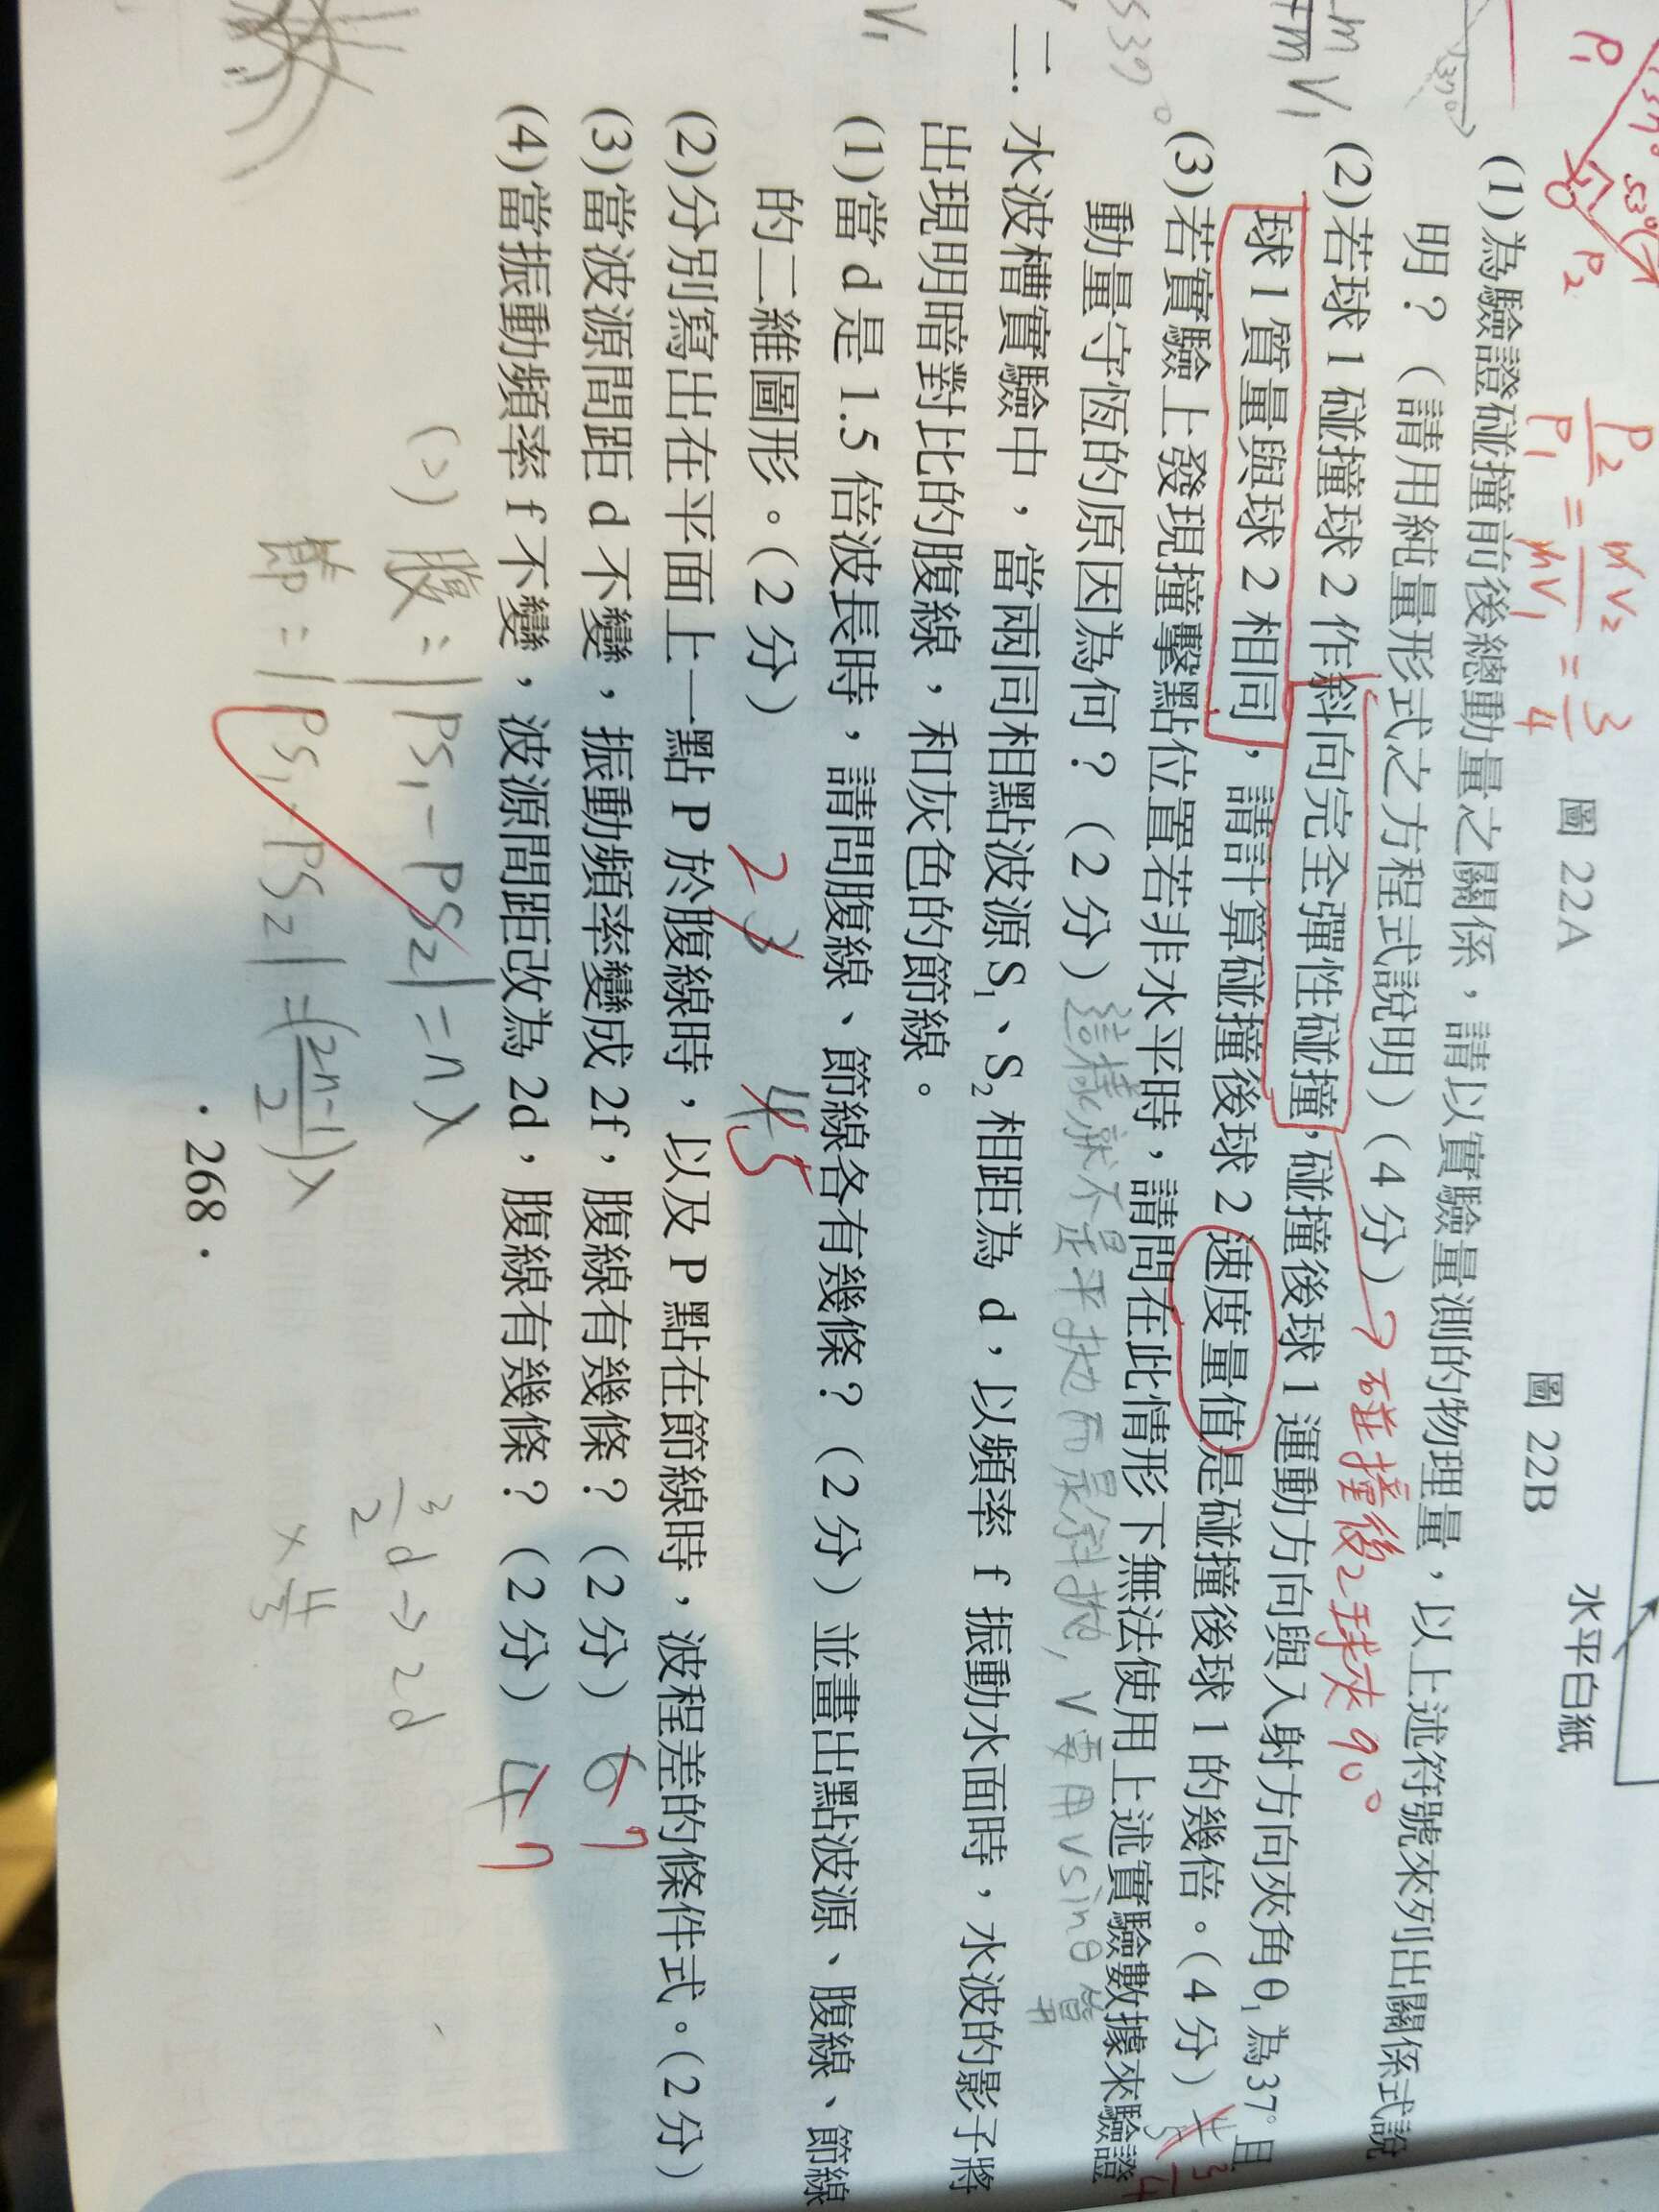 P₁
37°
53°
P₂
37°
P₂/P₁ = mv₂/mv₁ = 3/4
圖 22A
圖 22B
水平白紙
(1)為驗證碰撞前後總動量之關係，請以實驗量測的物理量，以上述符號來列出關係式說
明？（請用純量形式之方程式說明）（4 分）
? 碰撞後2球夾90°
(2)若球 1 碰撞球 2 作斜向完全彈性碰撞，碰撞後球 1 運動方向與入射方向夾角θ₁為37°且
球 1 質量與球 2 相同，請計算碰撞後球 2 速度量值是碰撞後球 1 的幾倍。（4 分）
3/4
(3)若實驗上發現撞擊點位置若非水平時，請問在此情形下無法使用上述實驗數據來驗證
動量守恆的原因為何？（2 分）這樣就不是平拋而是斜拋, V要用Vsinθ算
二. 水波槽實驗中，當兩同相點波源 S₁、S₂ 相距為 d，以頻率 f 振動水面時，水波的影子將
出現明明暗對比的腹線，和灰色的節線。
(1)當 d 是 1.5 倍波長時，請問腹線、節線各有幾條？（2 分）並畫出點波源、腹線、節線
的二維圖形。（2 分）
2 3 4 5
(2)分別寫出在平面上一點 P 於腹線時，以及 P 點在節線時，波程差的條件式。（2 分）
(3)當波源間距 d 不變，振動頻率變成 2f，腹線有幾條？（2 分） 6 7
(4)當振動頻率 f 不變，波源間距改為 2d，腹線有幾條？（2 分） 4 7
(2) 腹：|PS₁ − PS₂| = nλ
節：|PS₁ − PS₂| = (2n−1/2)λ
3/2 d → 2d
× 4/3
· 268 ·